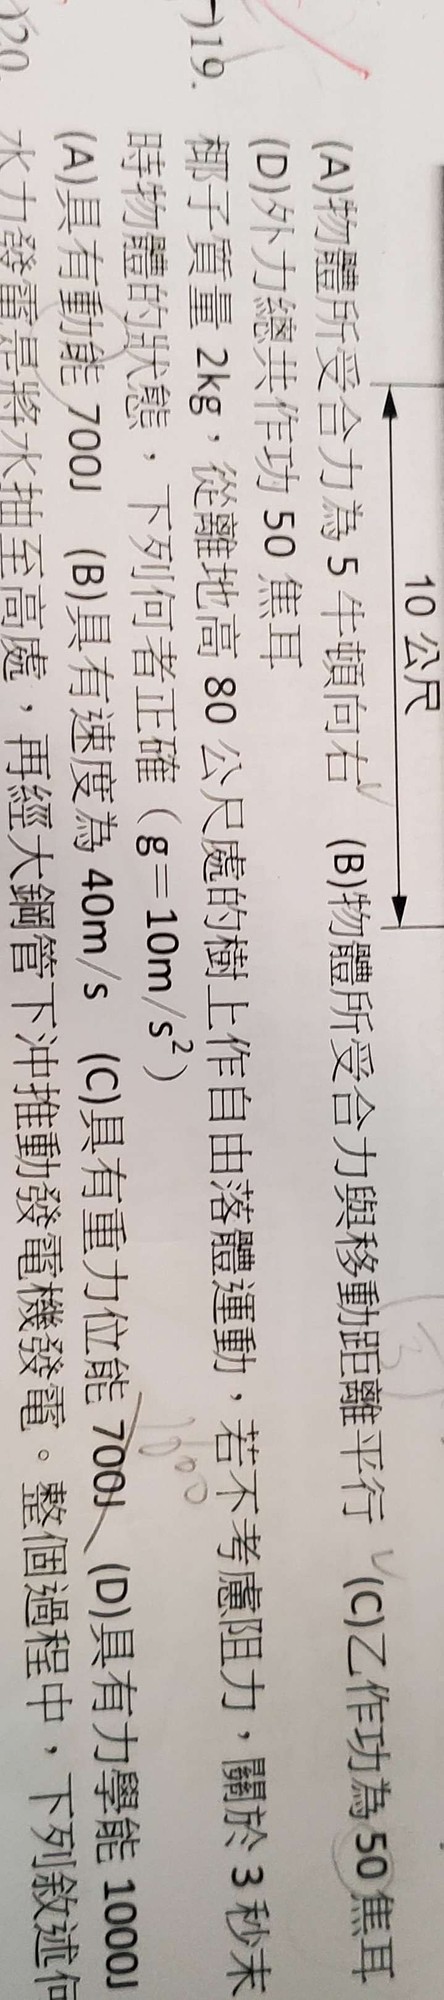 10 公尺
(A)物體所受合力為 5 牛頓向右 (B)物體所受合力與移動距離平行 (C)乙作功為 50 焦耳
(D)外力總共作功 50 焦耳
)19. 椰子質量 2kg，從離地高 80 公尺處的樹上作自由落體運動，若不考慮阻力，關於 3 秒末
時物體的狀態，下列何者正確（g＝10m/s²）
1600
(A)具有動能 700J (B)具有速度為 40m/s (C)具有重力位能 700J (D)具有力學能 1000J
)20. 水力發電是將水抽至高處，再經大鋼管下沖推動發電機發電。整個過程中，下列敘述何